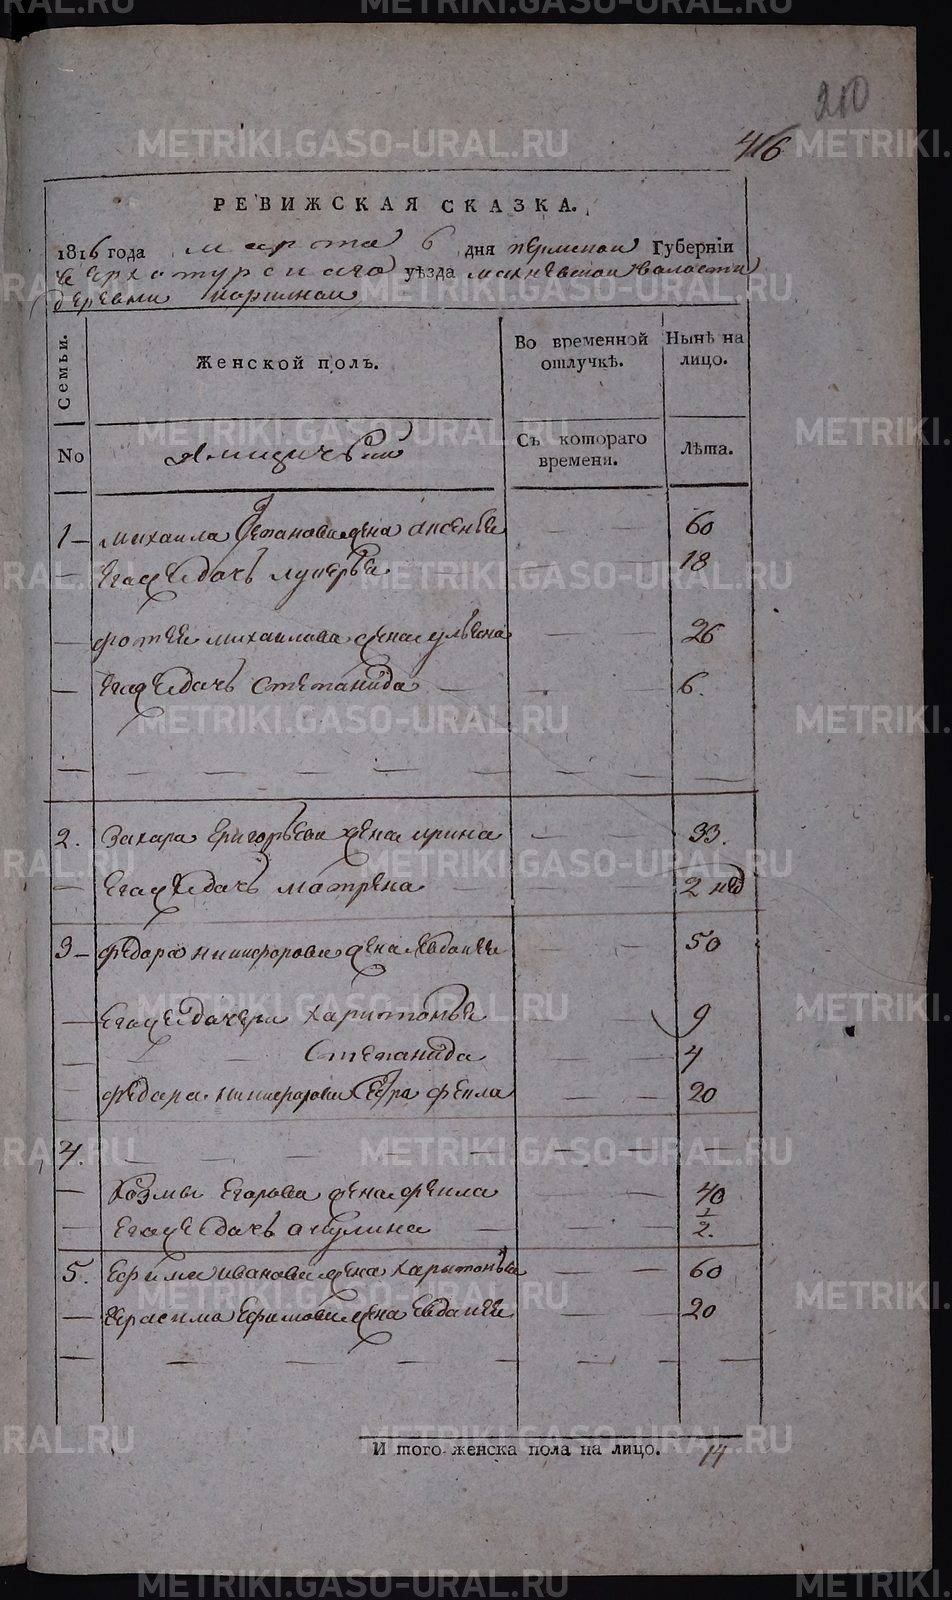 210
416
РЕВИЖСКАЯ СКАЗКА.
1816 года марта 6 дня пермской Губерніи
верхотурскаго уѣзда махневской воласти
деревни
Семьи.
Женской полъ.
Во временной отлучкѣ.
Нынѣ на лицо.
No
Съ котораго времени.
Лѣта.
1 — михаила степанова жена аксенья — — 60
— его же дочь лукерья — — 18
— фотея михаилова жена ульяна — — 26
— его же дочь степанида — — 6.
2. захара григорьева жена ирина — — 33.
— его же дочь матрена — — 2 нед
3 — федора никифорова жена евдокея — — 50
— его же дочери харитонья — — 9
степанида — — 4
— федора никифорова сестра фекла — — 20
4. — — — — — —
— козмы егорова жена фекла — — 40
— его же дочь акулина — — 1/2.
5. ефима иванова жена харытонья — — 60
— герасима ефимова жена евдокея — — 20
И того женска пола на лицо. 14
METRIKI.GASO-URAL.RU